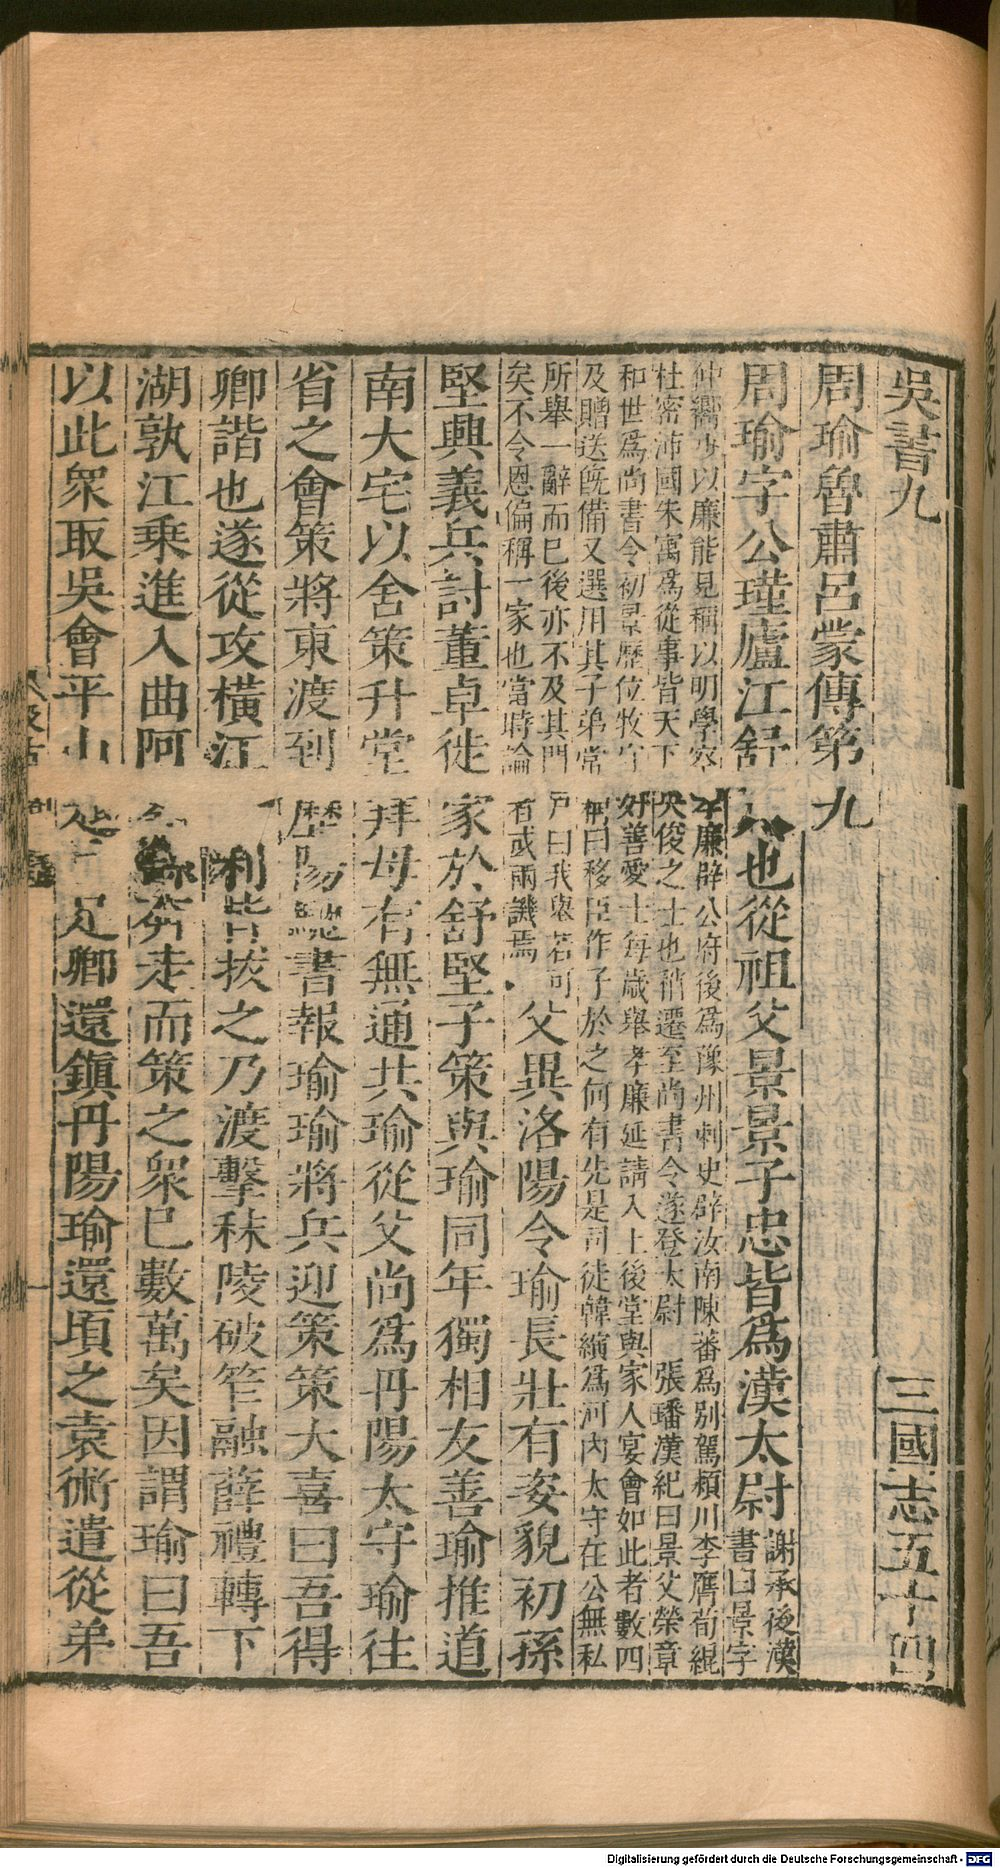 吳書九 三國志五十四
周瑜魯肅呂蒙傳第九
周瑜字公瑾廬江舒也從祖父景景子忠皆爲漢太尉
謝承後漢
書曰景字
仲嚮少以廉能見稱以明學察孝廉辟公府後爲豫州刺史辟汝南陳蕃爲別駕頴川李膺荀緄
杜密沛國朱寓爲從事皆天下俊之士也稍遷至尚書令遂登太尉 張璠漢紀曰景父榮章
和世爲尚書令初景歷位牧守好善愛士每歲舉孝廉延請入上後堂與家人宴會如此者數四
及贈送旣備又選用其子弟常稱曰移臣作子於之何有先是司徒韓縯爲河內太守在公無私
所舉一辭而已後亦不及其門戸曰我舉若可
矣不令恩偏稱一家也當時論有或兩譏焉
父異洛陽令瑜長壯有姿貌初孫
堅興義兵討董卓徙家於舒堅子策與瑜同年獨相友善瑜推道
南大宅以舍策升堂拜母有無通共瑜從父尚爲丹陽太守瑜往
省之會策將東渡到歷陽書報瑜瑜將兵迎策策大喜曰吾得
卿諧也遂從攻橫江利皆拔之乃渡擊秣陵破笮融薛禮轉下
湖孰江乘進入曲阿奔走而策之衆已數萬矣因謂瑜曰吾
以此衆取吳會平山足卿還鎮丹陽瑜還頃之袁術遣從弟
Digitalisierung gefördert durch die Deutsche Forschungsgemeinschaft - DFG